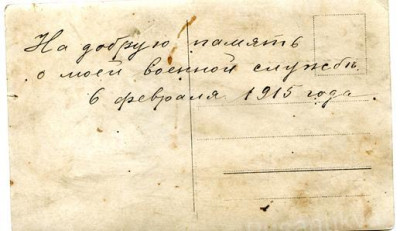 На добрую память
о моей военной службѣ.
6 февраля 1915 года.